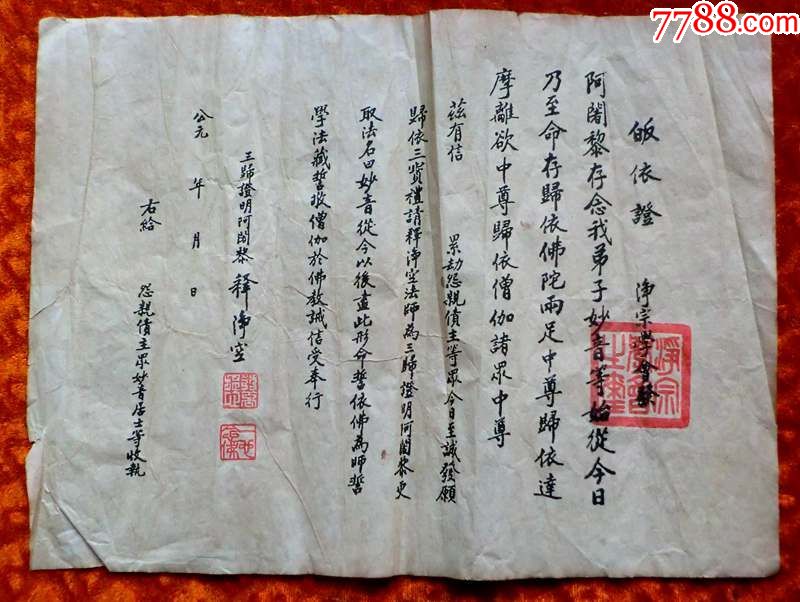 7788.com
皈依證 淨宗學會發
阿闍黎存念我弟子妙音等始從今日
乃至命存歸依佛陀兩足中尊歸依達
摩離欲中尊歸依僧伽諸眾中尊
茲有信 累劫怨親債主等眾今日至誠發願
歸依三寶禮請釋淨空法師為三歸證明阿闍黎更
取法名曰妙音從今以後盡此形命誓依佛為師誓
學法藏誓敬僧伽於佛教誡信受奉行
三歸證明阿闍黎 釋淨空
公元 年 月 日
右給 怨親債主眾妙音居士等收執